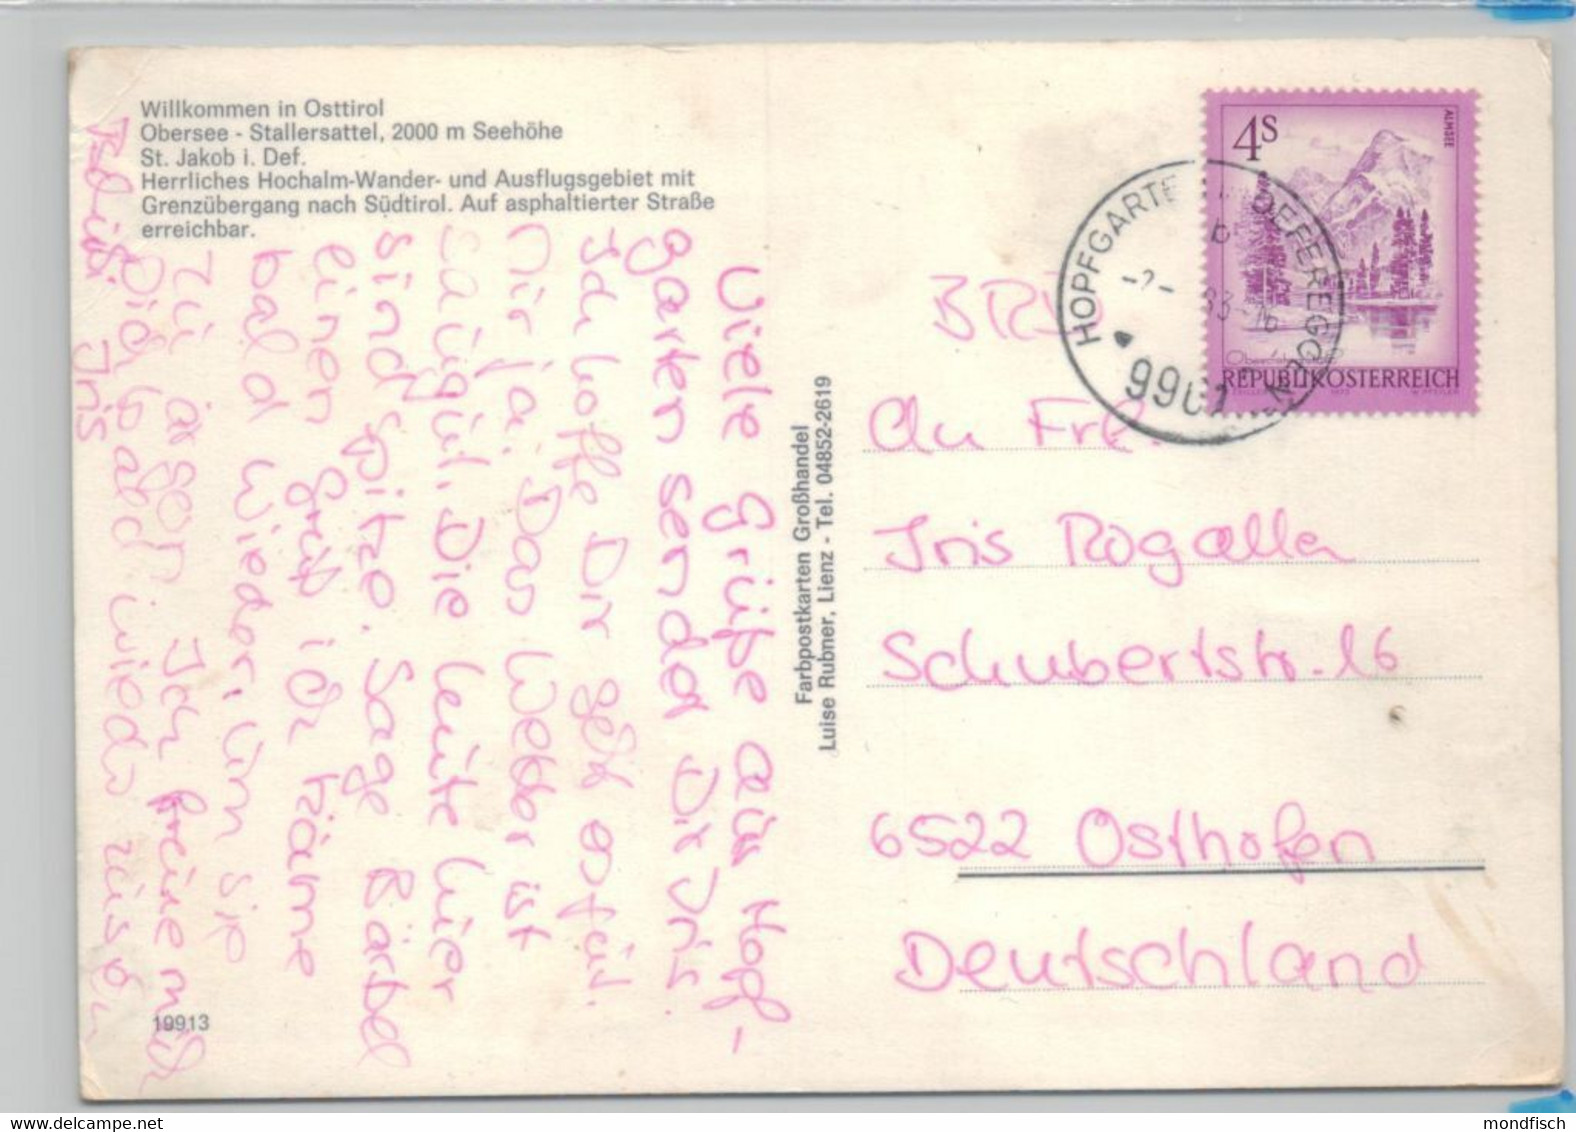 Willkommen in Osttirol
Obersee - Stallersattel, 2000 m Seehöhe
St. Jakob i. Def.
Herrliches Hochalm-Wander- und Ausflugsgebiet mit
Grenzübergang nach Südtirol. Auf asphaltierter Straße
erreichbar.
Viele Grüße aus Hopf-
garten sendet Dir Iris.
Ich hoffe Dir geht es
Mir ja. Das Wetter ist
saugut. Die Leute hier
sind Spitze. Sage Bärbel
einen Gruß ich käme
bald wieder, um sie
zu ärgern. Ich freue mich
Dich bald wieder zu
Iris
19913
Farbpostkarten Großhandel
Luise Rubner, Lienz - Tel. 04852-2619
4S
ALMSEE
REPUBLIK ÖSTERREICH
HOPFGARTEN DEFEREGGEN
9961
BRD
An Frl.
Iris Rogalla
Schubertstr. 16
6522 Osthofen
Deutschland
mondfisch